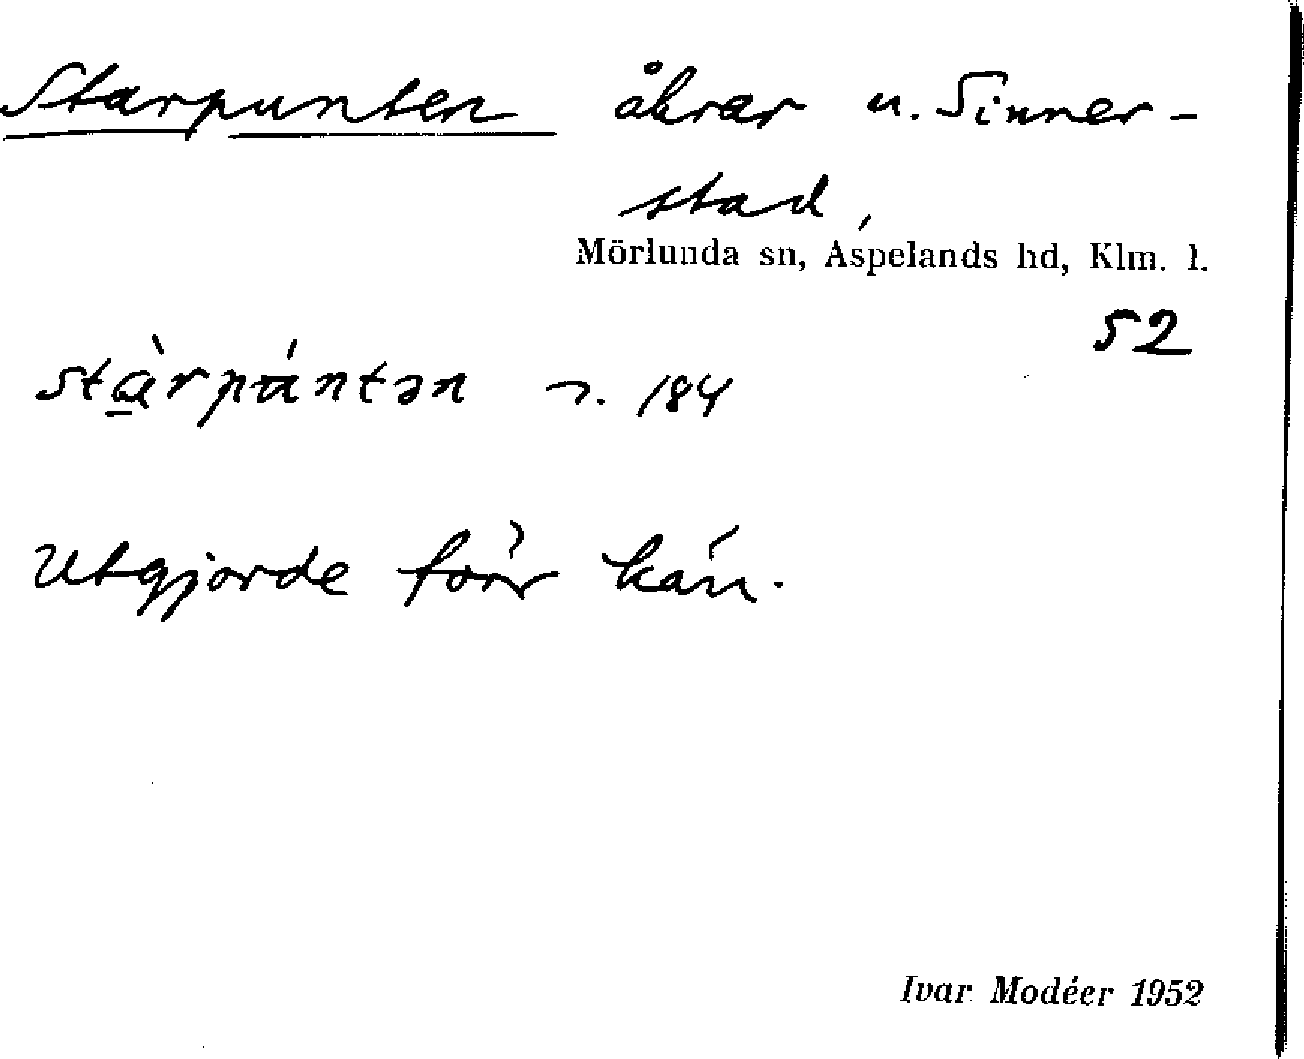 Starpunten åkrar u. Sinner-
stad,
Mörlunda sn, Aspelands hd, Klm. l.
52
stɑ̀rpúntən 184
Utgjorde förr kärr.
Ivar Modéer 1952